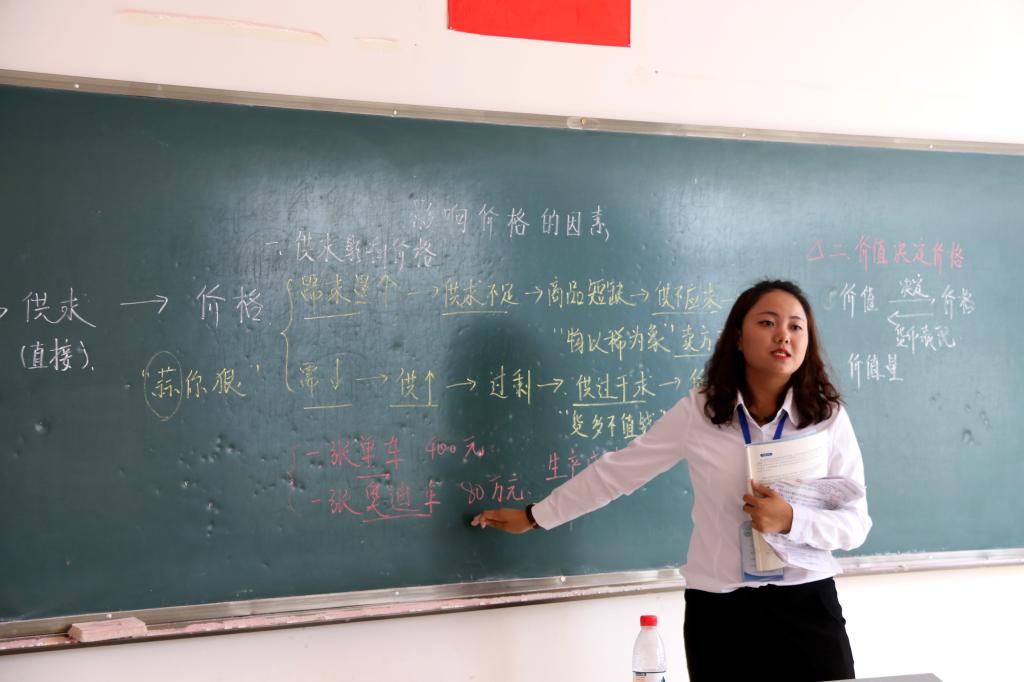 影响价格的因素
一、供求影响价格
△二、价值决定价格
供求 → 价格
(直接)
需求量个 → 供求不足 → 商品短缺 → 供不应求 →
"物以稀为贵" 卖方
"蒜你狠"
需↓ → 供↑ → 过剩 → 供过于求 →
"货多不值钱"
一张单车 400元
一张奥迪车 80万元
生产
价值 决定 价格
货币表现
价值量